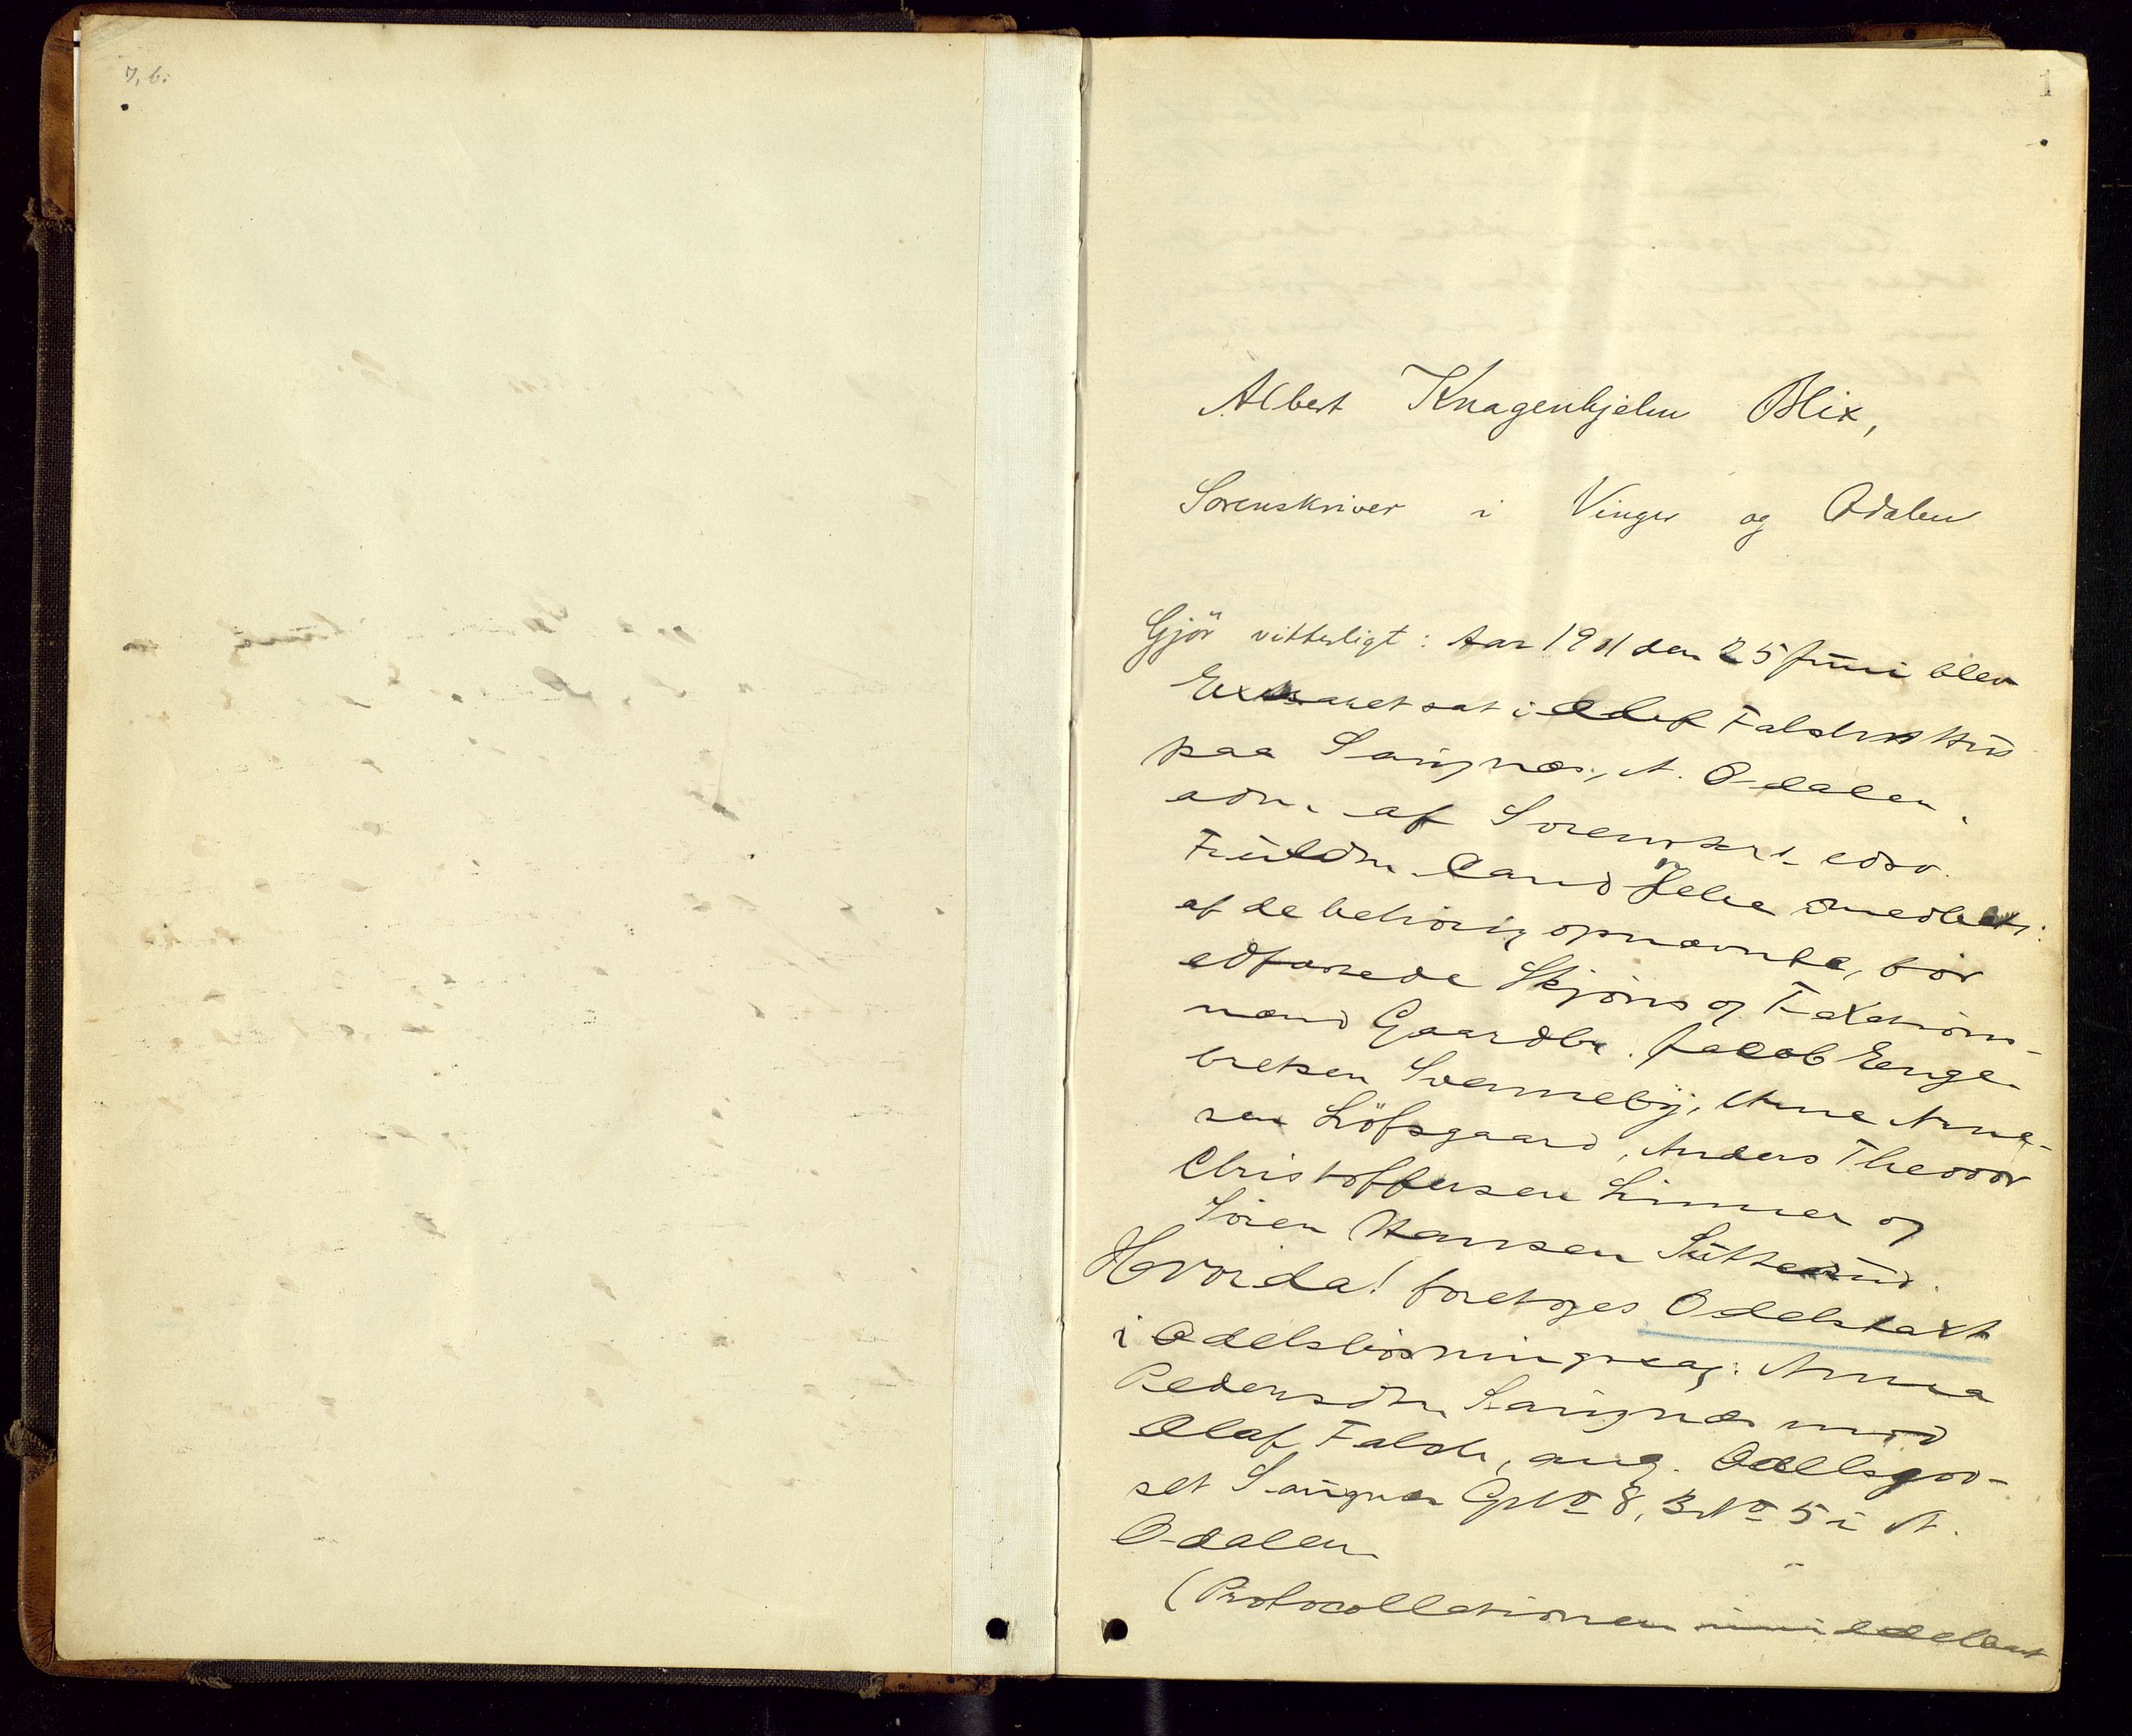 7, b.
1
Albert Knagenhjelm Blix,
Sorenskriver i Vinger og Odalen
Gjör vitterligt: Aar 1901 den 25 Juni blev
Extraret sat i Olaf Falchs Hus
paa Saugnæs, N. Odalen,
adm. af Sorenskr.s edsv.
Fuldm. Cand
af de behörig opnævnte, för
edfæstede Skjöns og Taxations-
mænd Gaardbr. Jacob Enge-
bretsen Svenneby, Arne Arne-
sen Löfsgaard, Anders Theodor
Christoffersen Linner og
Sören Hansen
Hvorda! foretoges Odelstaxt
i Odelslösningssag: Anna
Pedersdtr. Saugnæs mod
Olaf Falch, ang. Odelsgod-
set Saugnæs GNo 8, BNo 5 i N.
Odalen
(Protocollationen